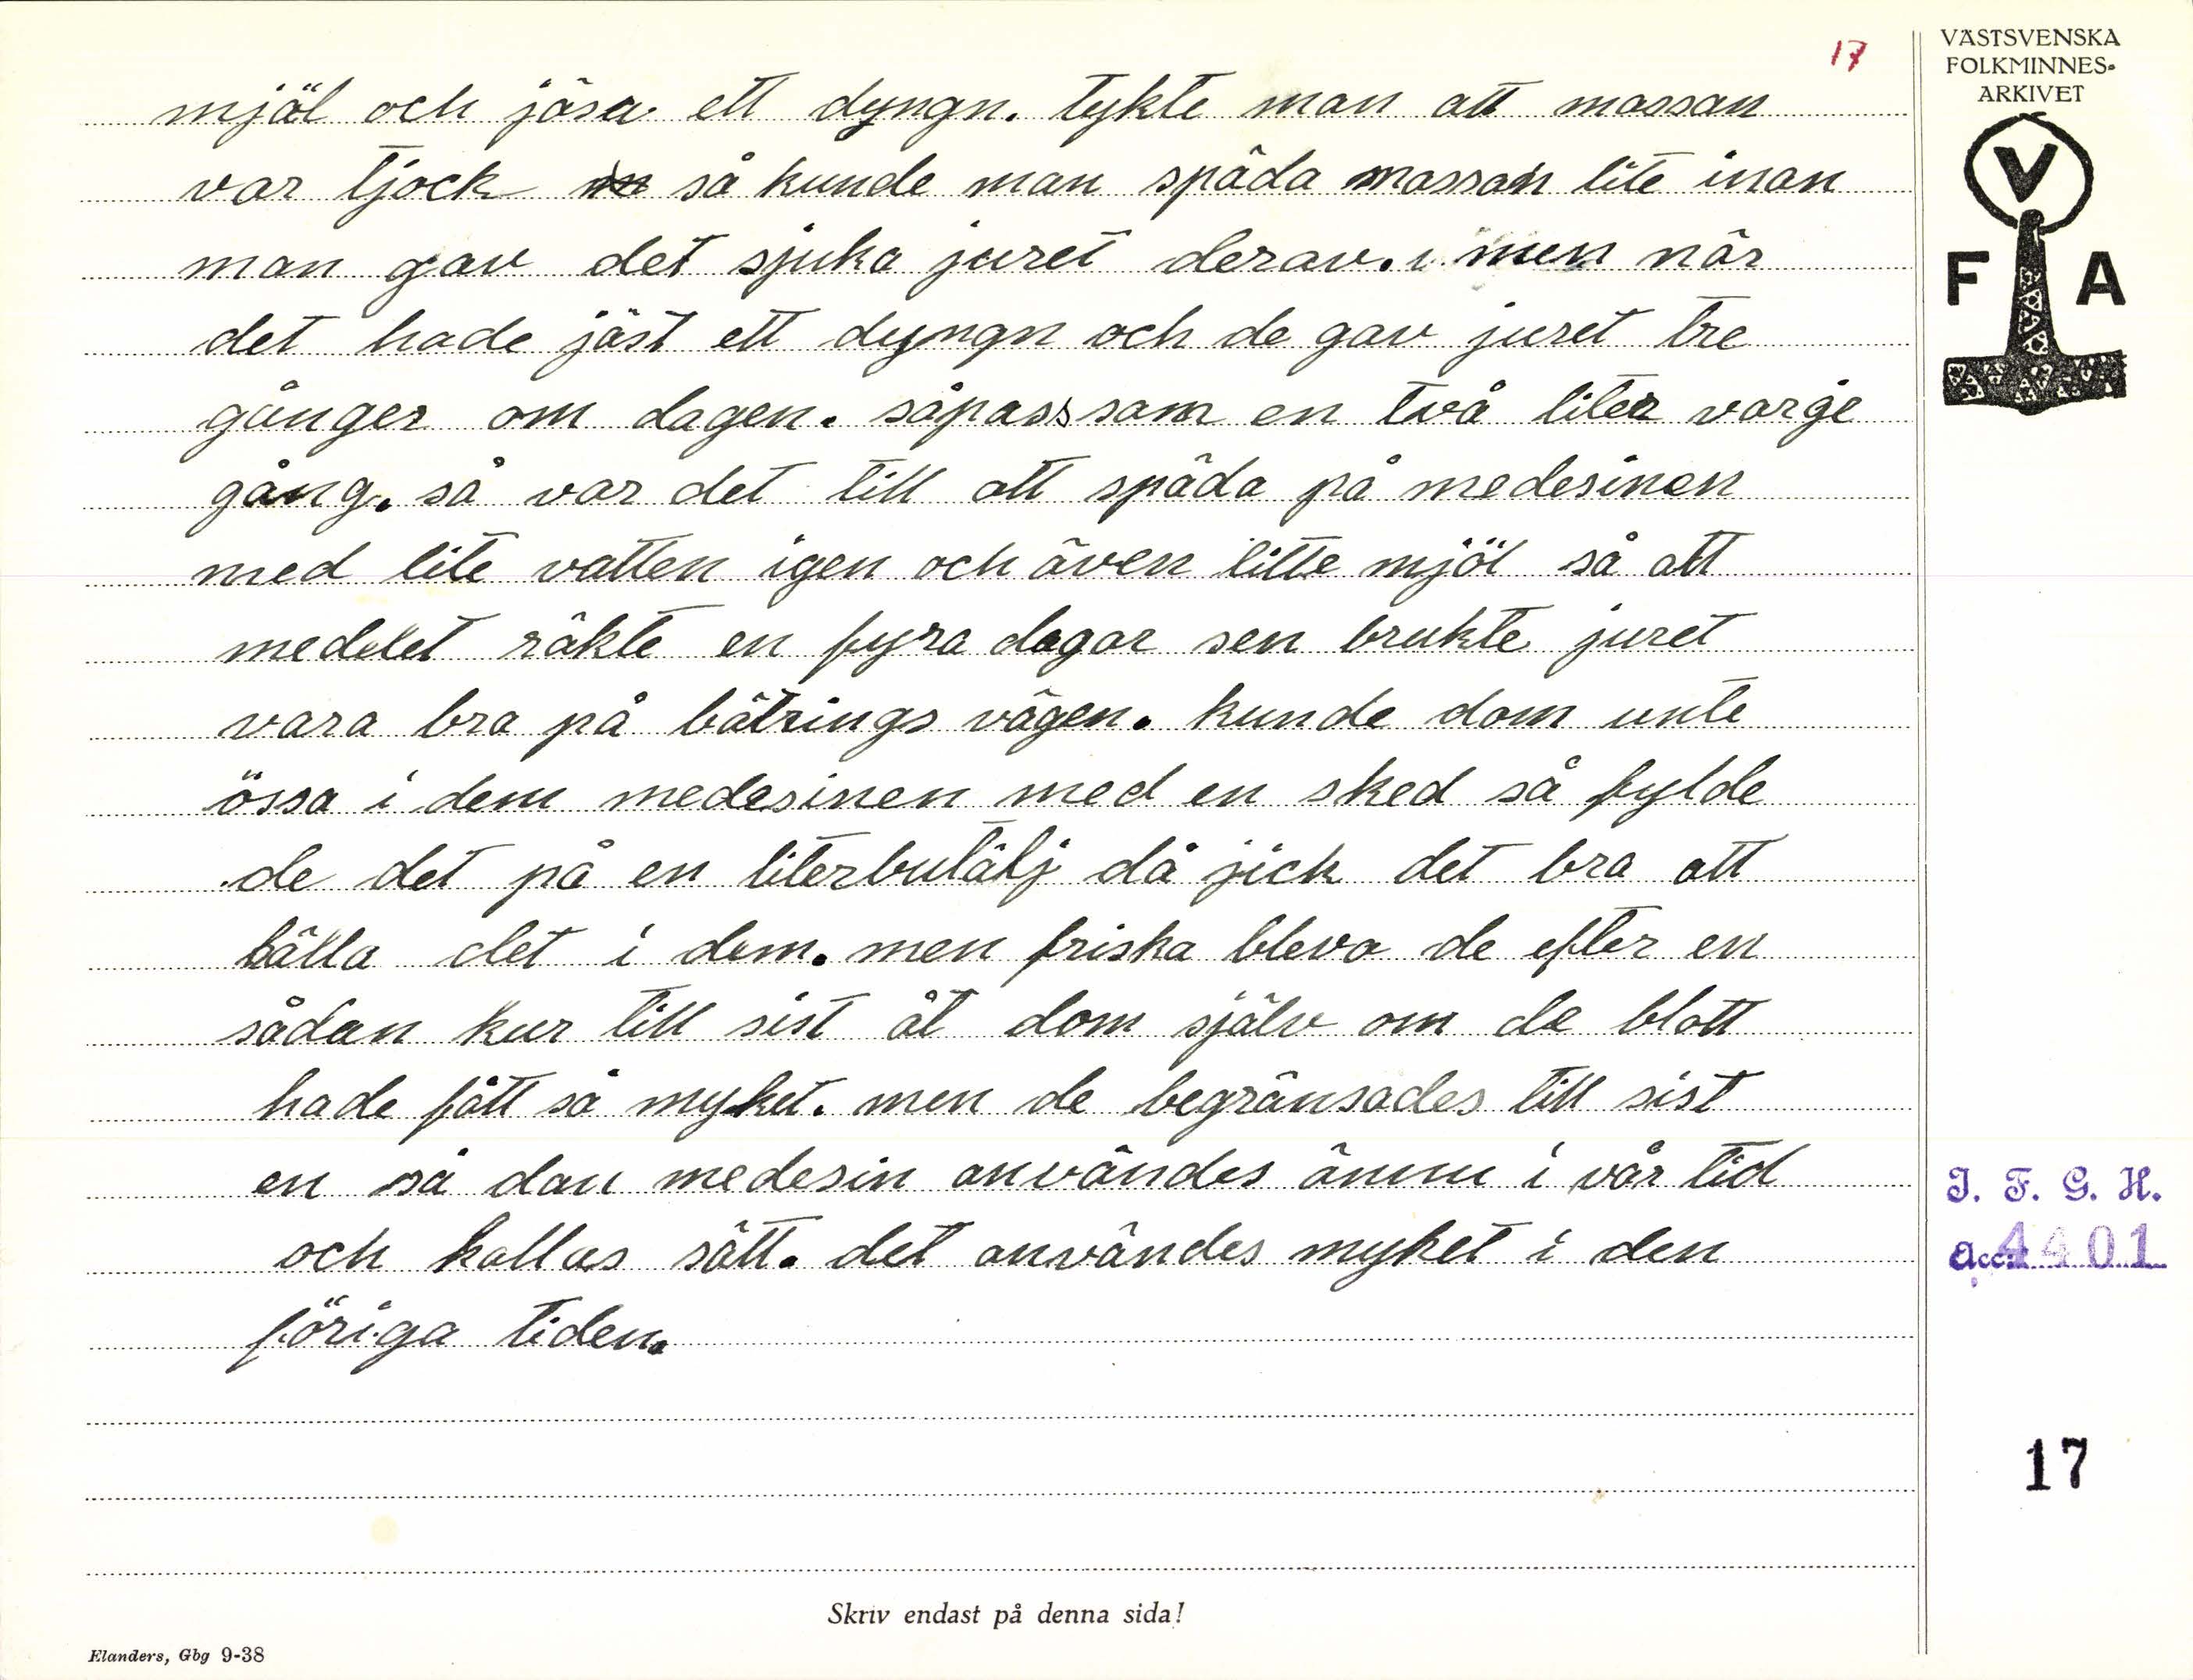 17
VÄSTSVENSKA
FOLKMINNES-
ARKIVET
V
F A
mjöl och jäsa ett dyngn. tykte man att massan
var tjock så kunde man späda massan lite inan
man gav det sjuka juret derav. men när
det hade jäst ett dyngn och de gav juret tre
gånger om dagen. såpass som en två liter varje
gång. så var det till att späda på medesinen
med lite vatten igen och även litte mjöl så att
medelet räkte en fyra dagar sen brukte juret
vara bra på bätrings vägen. kunde dom inte
össa i dem medesinen med en sked så fylde
de det på en literbutälj då jick det bra att
hälla det i dem. men friska bleva de efter en
sådan kur till sist åt dom själv om de blott
hade fått så myket. men de begränsades till sist
en så dan medesin användes ännu i vår tid
och kallas sätt. det användes myket i den
föriga tiden.
I. F. G. H.
Acc: 4401
17
Skriv endast på denna sida!
Elanders, Gbg 9-38